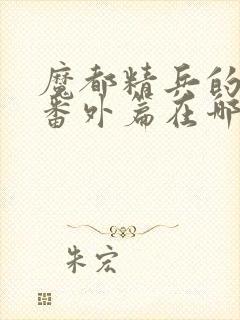 魔都精兵的
番外篇在哪
朱宏